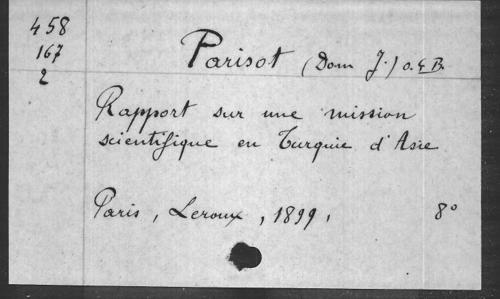 458
167
2
Parisot (Dom J.) O.S.B.
Rapport sur une mission
scientifique en Turquie d'Asie
Paris, Leroux, 1899, 8°